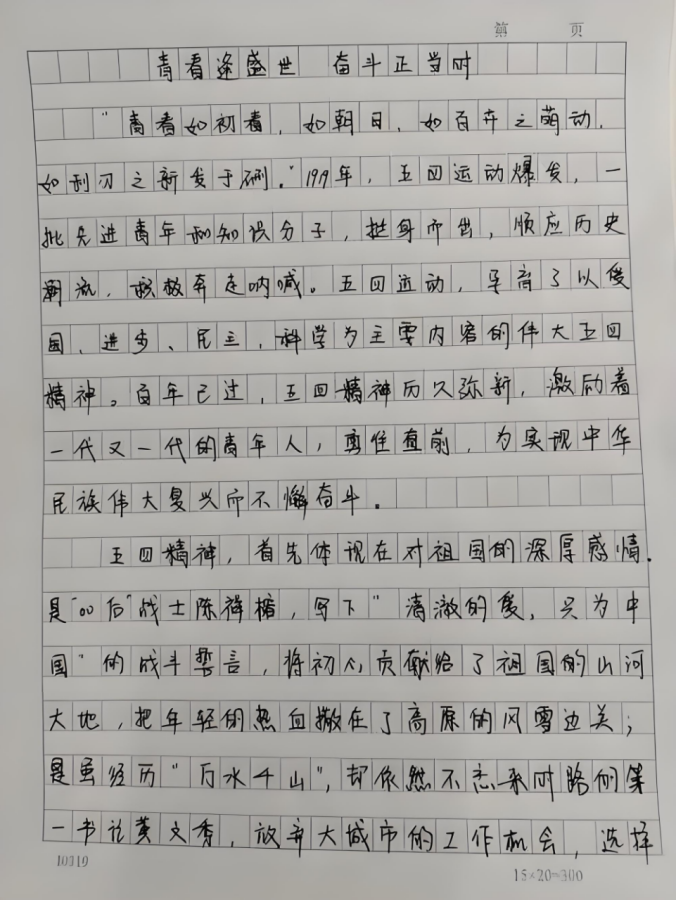 第 页
青春逢盛世 奋斗正当时
"青春如初春，如朝日，如百卉之萌动，
如利刃之新发于硎。"1919年，五四运动爆发，一
批先进青年和知识分子，挺身而出，顺应历史
潮流，积极奔走呐喊。五四运动，孕育了以爱
国、进步、民主、科学为主要内容的伟大五四
精神。百年已过，五四精神历久弥新，激励着
一代又一代的青年人，勇往直前，为实现中华
民族伟大复兴而不懈奋斗。
五四精神，首先体现在对祖国的深厚感情。
是"00后"战士陈祥榕，写下"清澈的爱，只为中
国"的战斗誓言，将初心贡献给了祖国的山河
大地，把年轻的热血撒在了高原的风雪边关；
是虽经历"万水千山"，却依然不忘来时路的第
一书记黄文秀，放弃大城市的工作机会，选择
10010
15×20=300